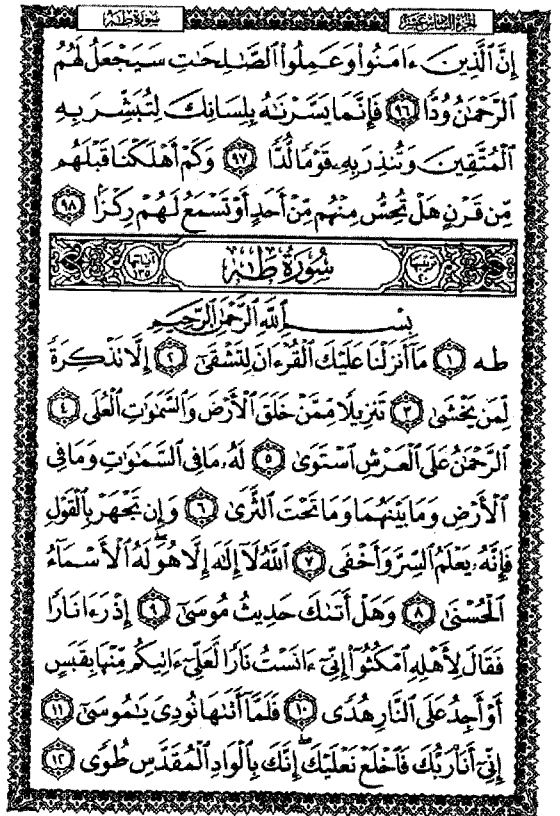 الجزء السادس عشر
سورة طه
إِنَّ ٱلَّذِينَ ءَامَنُوا۟ وَعَمِلُوا۟ ٱلصَّٰلِحَٰتِ سَيَجْعَلُ لَهُمُ
ٱلرَّحْمَٰنُ وُدًّا ٩٦ فَإِنَّمَا يَسَّرْنَٰهُ بِلِسَانِكَ لِتُبَشِّرَ بِهِ
ٱلْمُتَّقِينَ وَتُنذِرَ بِهِۦ قَوْمًا لُّدًّا ٩٧ وَكَمْ أَهْلَكْنَا قَبْلَهُم
مِّن قَرْنٍ هَلْ تُحِسُّ مِنْهُم مِّنْ أَحَدٍ أَوْ تَسْمَعُ لَهُمْ رِكْزًۢا ٩٨
ترتيبها ٢٠
سُورَةُ طه
آياتها ١٣٥
بِسْمِ ٱللَّهِ ٱلرَّحْمَٰنِ ٱلرَّحِيمِ
طه ١ مَآ أَنزَلْنَا عَلَيْكَ ٱلْقُرْءَانَ لِتَشْقَىٰٓ ٢ إِلَّا تَذْكِرَةً
لِّمَن يَخْشَىٰ ٣ تَنزِيلًا مِّمَّنْ خَلَقَ ٱلْأَرْضَ وَٱلسَّمَٰوَٰتِ ٱلْعُلَى ٤
ٱلرَّحْمَٰنُ عَلَى ٱلْعَرْشِ ٱسْتَوَىٰ ٥ لَهُۥ مَا فِى ٱلسَّمَٰوَٰتِ وَمَا فِى
ٱلْأَرْضِ وَمَا بَيْنَهُمَا وَمَا تَحْتَ ٱلثَّرَىٰ ٦ وَإِن تَجْهَرْ بِٱلْقَوْلِ
فَإِنَّهُۥ يَعْلَمُ ٱلسِّرَّ وَأَخْفَى ٧ ٱللَّهُ لَآ إِلَٰهَ إِلَّا هُوَ ۖ لَهُ ٱلْأَسْمَآءُ
ٱلْحُسْنَىٰ ٨ وَهَلْ أَتَىٰكَ حَدِيثُ مُوسَىٰٓ ٩ إِذْ رَءَا نَارًا
فَقَالَ لِأَهْلِهِ ٱمْكُثُوٓا۟ إِنِّىٓ ءَانَسْتُ نَارًا لَّعَلِّىٓ ءَاتِيكُم مِّنْهَا بِقَبَسٍ
أَوْ أَجِدُ عَلَى ٱلنَّارِ هُدًى ١٠ فَلَمَّآ أَتَىٰهَا نُودِىَ يَٰمُوسَىٰٓ ١١
إِنِّىٓ أَنَا۠ رَبُّكَ فَٱخْلَعْ نَعْلَيْكَ ۖ إِنَّكَ بِٱلْوَادِ ٱلْمُقَدَّسِ طُوًى ١٢